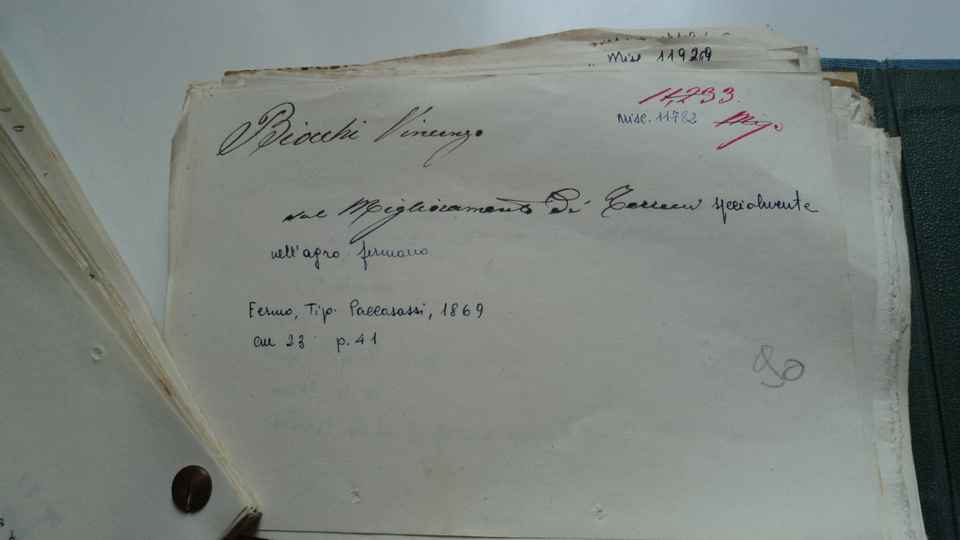 Misc 11929
11,733.
Misc. 11782 Mis.
Biocchi Vincenzo
sul Miglioramento di Terreni specialmente
nell'agro fermano
Fermo, Tip. Paccasassi, 1869
cm 23 p. 41